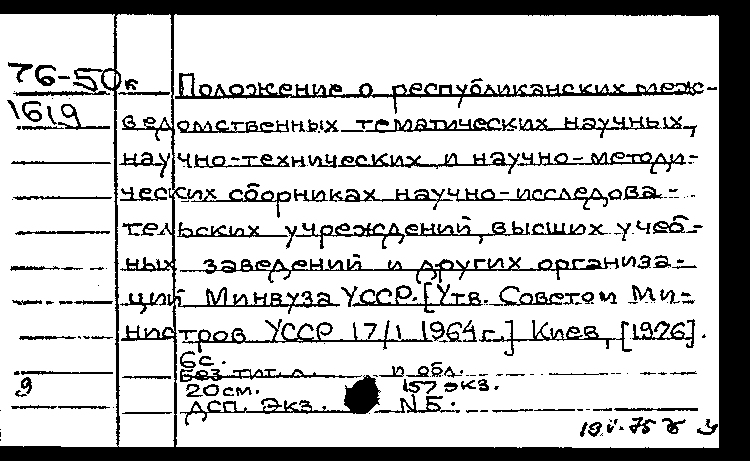 76-50к
1619
Положение о республиканских меж-
ведомственных тематических научных,
научно-технических и научно-методи-
ческих сборниках научно-исследова-
тельских учреждений, высших учеб-
ных заведений и других организа-
ций Минвуза УССР. [Утв. Советом Ми-
нистров УССР 17/I 1964 г.] Киев, [1976].
6с.
Без тит. л. и обл.
9 20см. 157 экз.
ДСП. Экз. № 5.